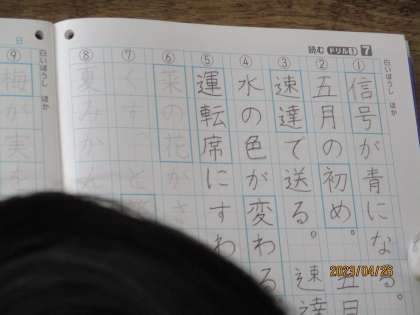 読む ドリル1 7
白いぼうし ほか
① 信号が青になる。
② 五月の初め。 五月
③ 速達で送る。 速達
④ 水の色が変わる
⑤ 運転席にすわ
⑥ 菜の花がさ
⑦
⑧ 夏みかん
白いぼうし ほか
⑨ 梅が実
2023/04/26